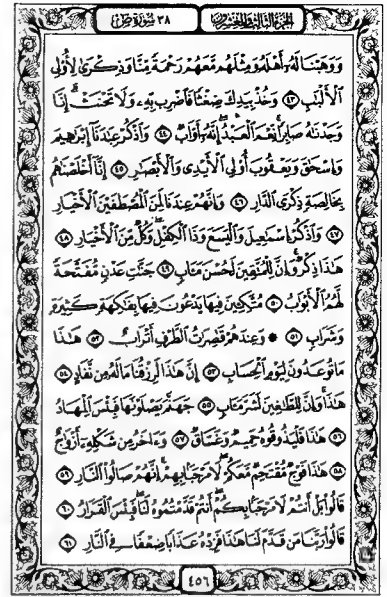 الجزء الثالث والعشرون ٣٨ سورة ص
وَوَهَبْنَا لَهُۥٓ أَهْلَهُۥ وَمِثْلَهُم مَّعَهُمْ رَحْمَةً مِّنَّا وَذِكْرَىٰ لِأُو۟لِى
ٱلْأَلْبَٰبِ ٤٣ وَخُذْ بِيَدِكَ ضِغْثًا فَٱضْرِب بِّهِۦ وَلَا تَحْنَثْ ۗ إِنَّا
وَجَدْنَٰهُ صَابِرًا ۚ نِّعْمَ ٱلْعَبْدُ ۖ إِنَّهُۥٓ أَوَّابٌ ٤٤ وَٱذْكُرْ عِبَٰدَنَآ إِبْرَٰهِيمَ
وَإِسْحَٰقَ وَيَعْقُوبَ أُو۟لِى ٱلْأَيْدِى وَٱلْأَبْصَٰرِ ٤٥ إِنَّآ أَخْلَصْنَٰهُم
بِخَالِصَةٍ ذِكْرَى ٱلدَّارِ ٤٦ وَإِنَّهُمْ عِندَنَا لَمِنَ ٱلْمُصْطَفَيْنَ ٱلْأَخْيَارِ
٤٧ وَٱذْكُرْ إِسْمَٰعِيلَ وَٱلْيَسَعَ وَذَا ٱلْكِفْلِ ۖ وَكُلٌّ مِّنَ ٱلْأَخْيَارِ ٤٨
هَٰذَا ذِكْرٌ ۚ وَإِنَّ لِلْمُتَّقِينَ لَحُسْنَ مَـَٔابٍ ٤٩ جَنَّٰتِ عَدْنٍ مُّفَتَّحَةً
لَّهُمُ ٱلْأَبْوَٰبُ ٥٠ مُتَّكِـِٔينَ فِيهَا يَدْعُونَ فِيهَا بِفَٰكِهَةٍ كَثِيرَةٍ
وَشَرَابٍ ٥١ ۞ وَعِندَهُمْ قَٰصِرَٰتُ ٱلطَّرْفِ أَتْرَابٌ ٥٢ هَٰذَا
مَا تُوعَدُونَ لِيَوْمِ ٱلْحِسَابِ ٥٣ إِنَّ هَٰذَا لَرِزْقُنَا مَا لَهُۥ مِن نَّفَادٍ ٥٤
هَٰذَا ۚ وَإِنَّ لِلطَّٰغِينَ لَشَرَّ مَـَٔابٍ ٥٥ جَهَنَّمَ يَصْلَوْنَهَا فَبِئْسَ ٱلْمِهَادُ
٥٦ هَٰذَا فَلْيَذُوقُوهُ حَمِيمٌ وَغَسَّاقٌ ٥٧ وَءَاخَرُ مِن شَكْلِهِۦٓ أَزْوَٰجٌ
٥٨ هَٰذَا فَوْجٌ مُّقْتَحِمٌ مَّعَكُمْ ۖ لَا مَرْحَبًۢا بِهِمْ ۚ إِنَّهُمْ صَالُوا۟ ٱلنَّارِ ٥٩
قَالُوا۟ بَلْ أَنتُمْ لَا مَرْحَبًۢا بِكُمْ ۖ أَنتُمْ قَدَّمْتُمُوهُ لَنَا ۖ فَبِئْسَ ٱلْقَرَارُ ٦٠
قَالُوا۟ رَبَّنَا مَن قَدَّمَ لَنَا هَٰذَا فَزِدْهُ عَذَابًا ضِعْفًا فِى ٱلنَّارِ ٦١
٤٥٦